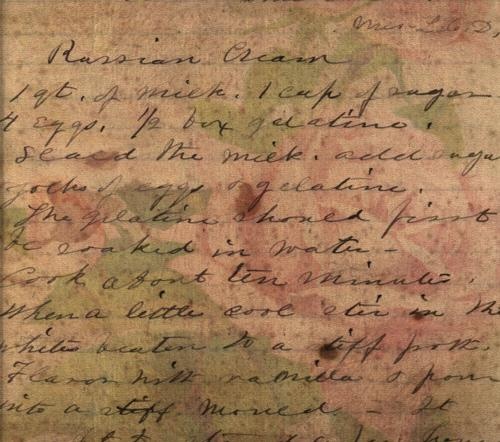 Mrs L. D.
Russian Cream
1 qt. of milk. 1 cup of sugar
4 eggs. 1/2 box gelatine.
Scald the milk. add suga
yolks of eggs & gelatine.
The gelatine should first
be soaked in water -
Cook about ten minutes.
When a little cool stir in the
whites beaten to a stiff froth.
Flavor with vanilla & pour
into a stiff mould. - It